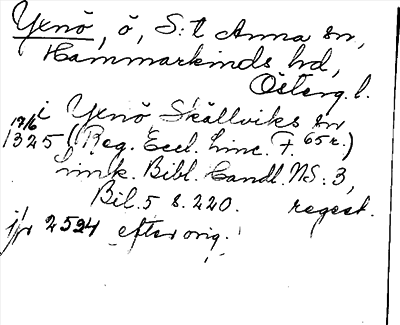 Yxnö, ö, S:t Anna sn,
Hammarkinds hd,
Österg. l.
i Yxnö Skällviks sn
17/6 1325 (Reg. Eccl. Linc. F. 65 r.)
Link. Bibl. Handl. NS: 3,
Bil. 5 s. 220. regest.
jfr 2524 efter orig.